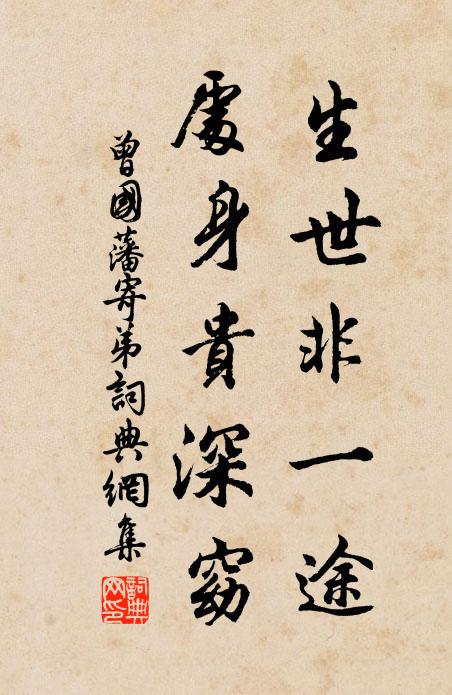 生世非一途
處身貴深窈
曾國藩寄弟詞典網集
詞典網印